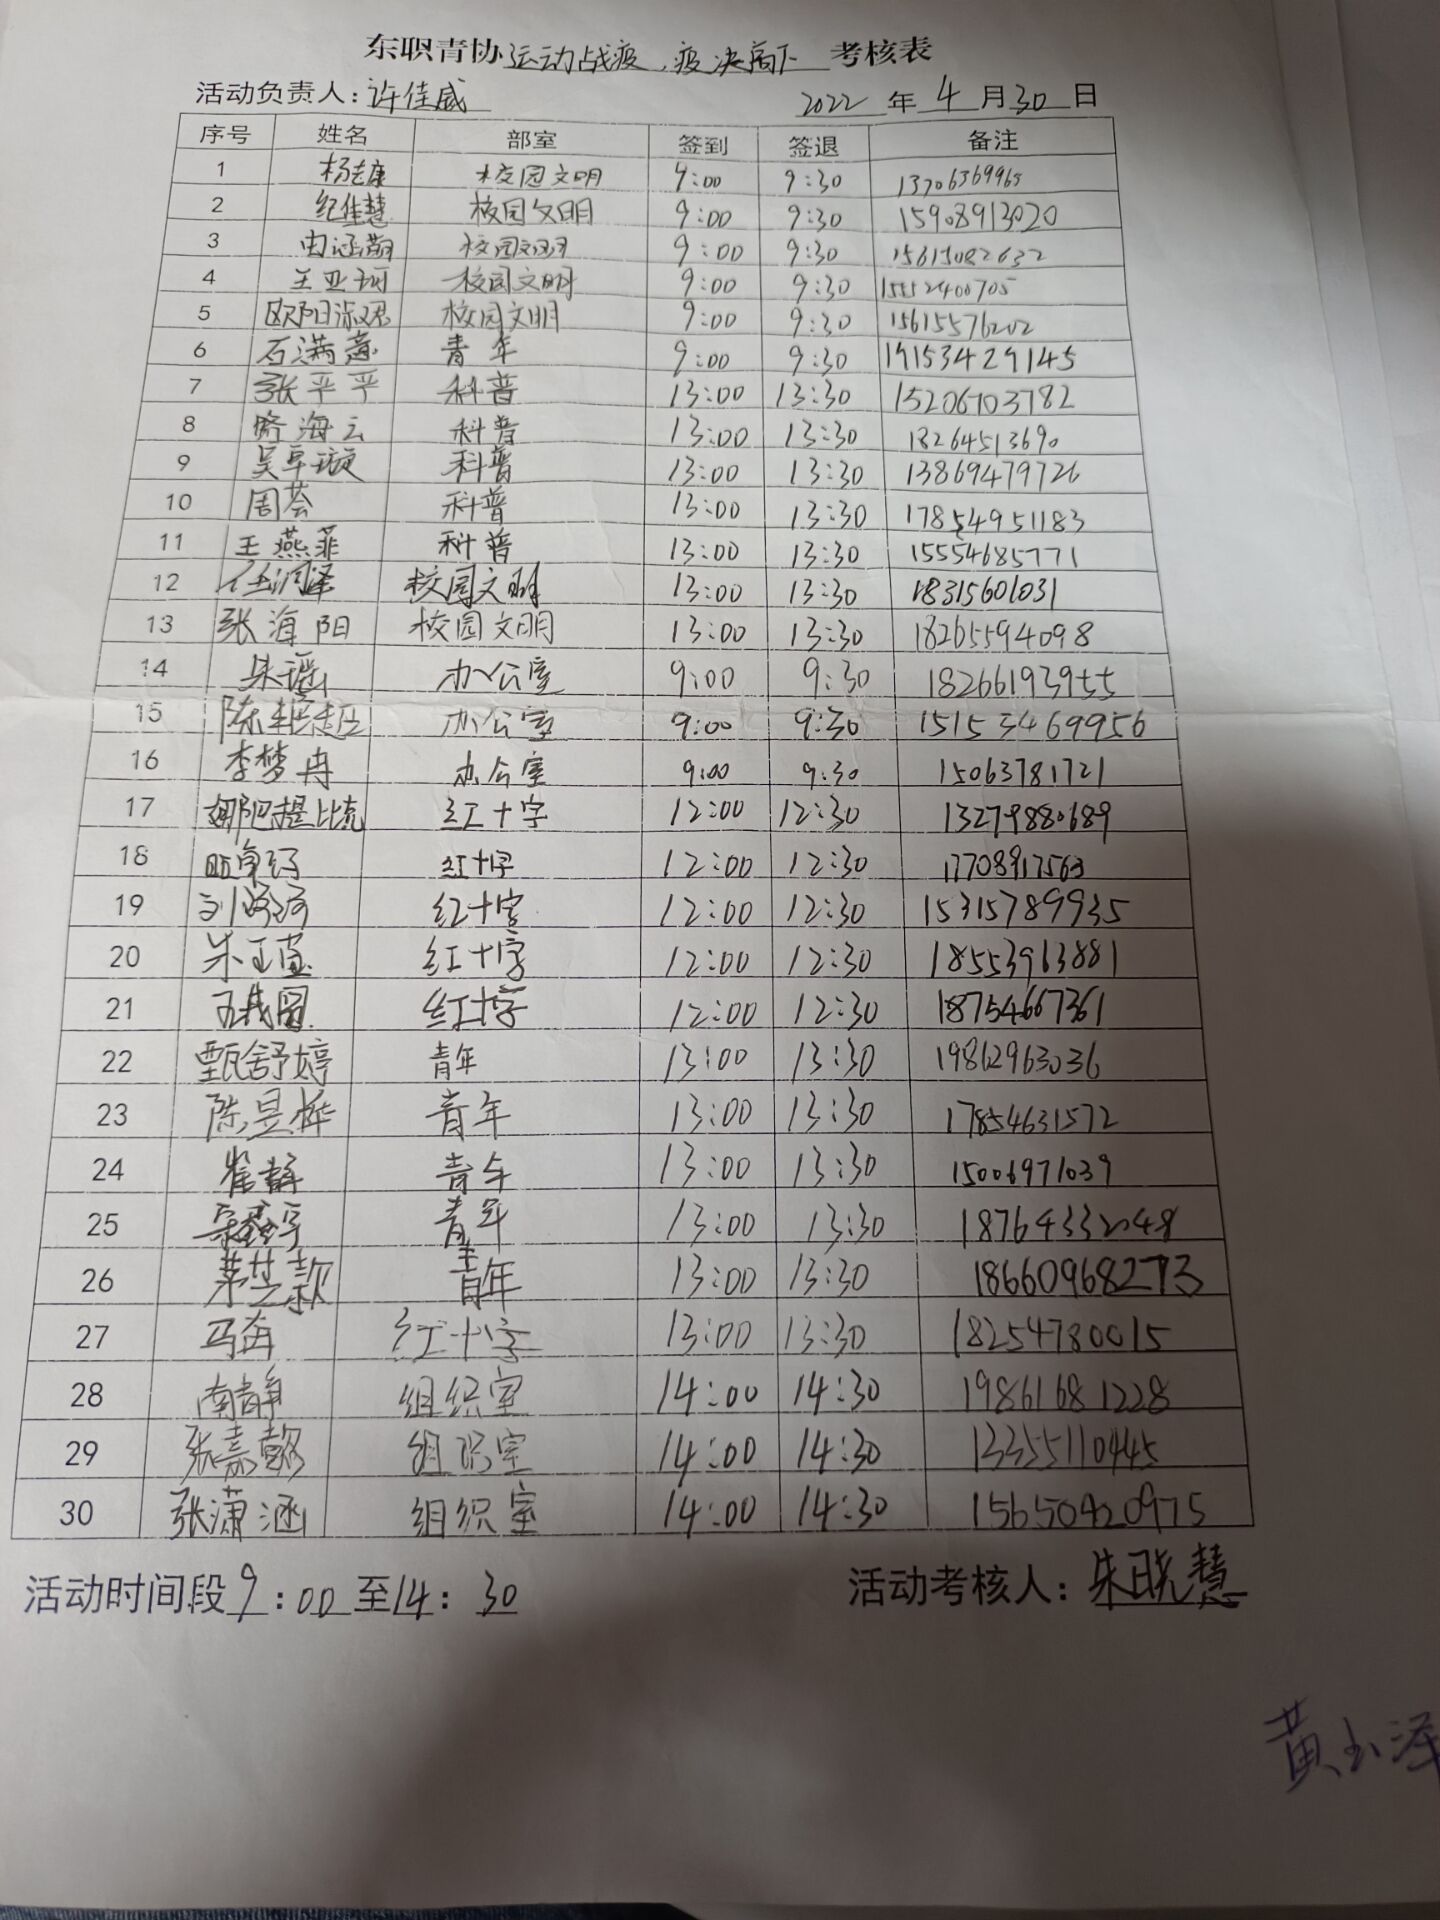 东职青协运动战疫，疫决高下考核表
活动负责人：许佳威 2022年4月30日
序号 姓名 部室 签到 签退 备注
1 杨志康 校园文明 9:00 9:30 13706369965
2 纪佳慧 校园文明 9:00 9:30 15908913020
3 校园文明 9:00 9:30 15615082632
4 王亚珂 校园文明 9:00 9:30 15552400705
5 欧阳淑君 校园文明 9:00 9:30 15615576202
6 石满意 青年 9:00 9:30 19153429145
7 张平平 科普 13:00 13:30 15206703782
8 海云 科普 13:00 13:30 18264513690
9 吴卓璇 科普 13:00 13:30 13869479726
10 周荟 科普 13:00 13:30 17854951183
11 王燕菲 科普 13:00 13:30 15554685771
12 任润泽 校园文明 13:00 13:30 18315601031
13 张海阳 校园文明 13:00 13:30 18265594098
14 朱瑶 办公室 9:00 9:30 18266193955
15 陈超 办公室 9:00 9:30 15153469956
16 李梦冉 办公室 9:00 9:30 15063781721
17 娜阳提比克 红十字 12:00 12:30 13279880689
18 红十字 12:00 12:30 17708917563
19 刘 红十字 12:00 12:30 15315789935
20 朱 红十字 12:00 12:30 18553963881
21 红十字 12:00 12:30 18754667361
22 甄舒婷 青年 13:00 13:30 19862963036
23 陈昱桦 青年 13:00 13:30 17854631572
24 崔静 青年 13:00 13:30 15006971039
25 宇 青年 13:00 13:30 18764332048
26 茅芝款 青年 13:00 13:30 18660968273
27 马奔 红十字 13:00 13:30 18254780015
28 南静 组织室 14:00 14:30 19861681228
29 张嘉懿 组织室 14:00 14:30 13355110445
30 张潇涵 组织室 14:00 14:30 15650420975
活动时间段9:00至14:30 活动考核人：朱晓慧
黄玉泽